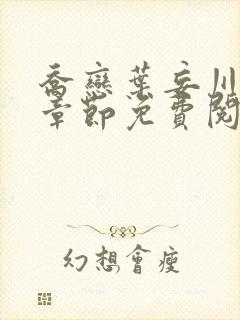 喬戀葉妄川
章節免費閱
幻想會瘦